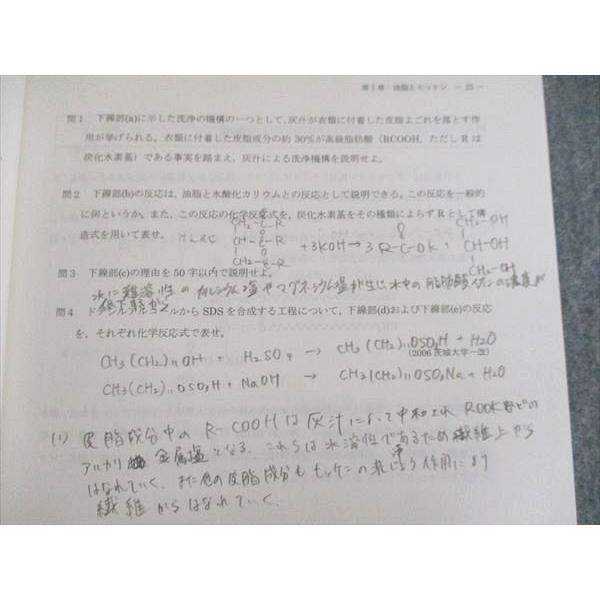 第1章 油脂とセッケン － 25 －
問1 下線部(a)に示した洗浄の機構の一つとして，灰汁が衣類に付着した皮脂よごれを落とす作
用が挙げられる。衣類に付着した皮脂成分の約30%が高級脂肪酸（RCOOH，ただしRは
炭化水素基）である事実を踏まえ，灰汁による洗浄機構を説明せよ。
問2 下線部(b)の反応は，油脂と水酸化カリウムとの反応として説明できる。この反応を一般的
に何というか。また，この反応の化学反応式を，炭化水素基をその種類によらずRとして構
造式を用いて表せ。
けん化
CH2-C-R
CH-C-R + 3KOH → 3 R-C-OK +
CH2-C-R
CH2-OH
CH-OH
CH2-OH
問3 下線部(c)の理由を50字以内で説明せよ。
水に難溶性のカルシウム塩やマグネシウム塩が生じ水中の脂肪酸イオンの濃度が
問4 ルからSDSを合成する工程について，下線部(d)および下線部(e)の反応
を，それぞれ化学反応式で表せ。
CH3(CH2)11OH + H2SO4 → CH3(CH2)11OSO3H + H2O
（2006 茨城大学－改）
CH3(CH2)11OSO3H + NaOH → CH3(CH2)11OSO3Na + H2O
(1) 皮脂成分中の R-COOHは灰汁によって中和され ROOKなどの
アルカリ金属塩となる．これらは水溶性であるため繊維上から
はなれていく．また他の皮脂成分もセッケンの乳化作用により
繊維からはなれていく．